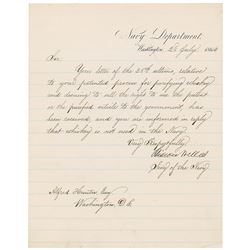 Navy Department,
Washington, 2 July, 1864
Sir:
Your letter of the 28th ultimo, relative
to your patented process for purifying whiskey
and to sell the right to use the patent
or the purified article to the government, has
been received, and you are informed in reply
that whiskey is not used in the Navy.
Very Respectfully,
Gideon Welles
Secy of the Navy
Alfred Hunter, Esq.
Washington, D.C.